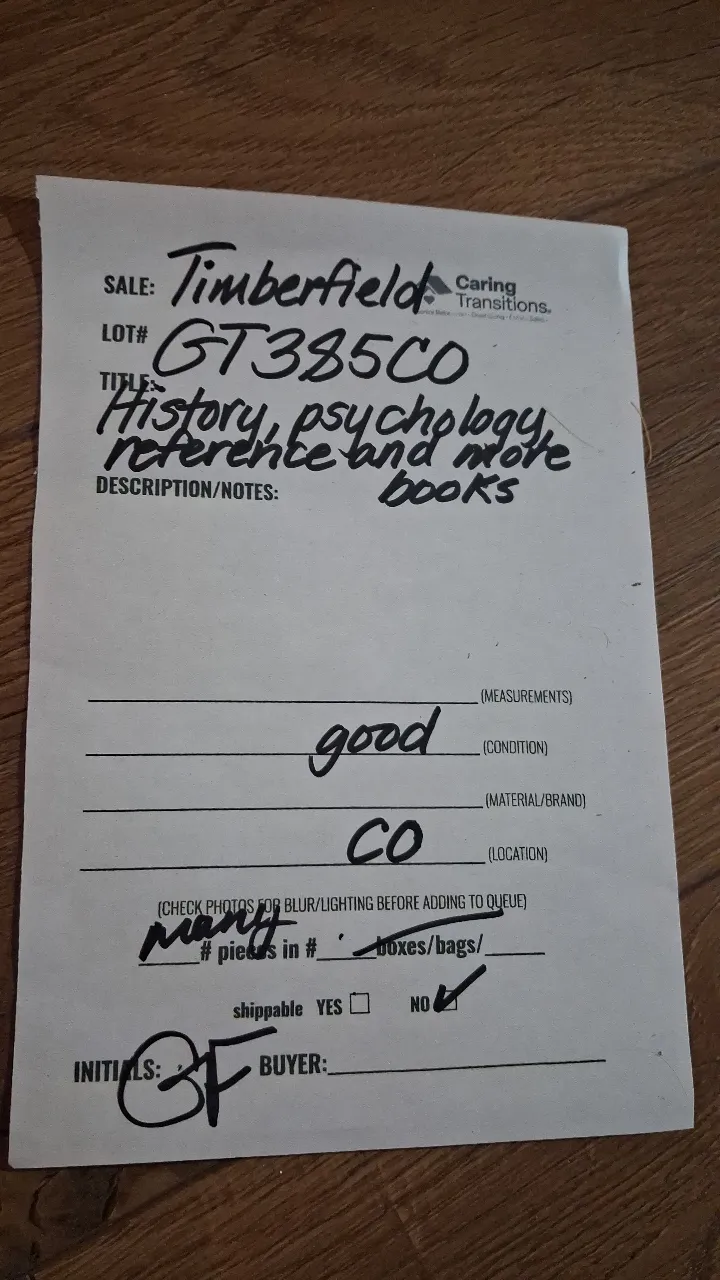 SALE: Timberfield
Caring
Transitions.
LOT# GT385CO
TITLE:
History, psychology,
reference and more
books
DESCRIPTION/NOTES:
(MEASUREMENTS)
good (CONDITION)
(MATERIAL/BRAND)
CO (LOCATION)
(CHECK PHOTOS FOR BLUR/LIGHTING BEFORE ADDING TO QUEUE)
many # pieces in # boxes/bags/
shippable YES NO
INITIALS: GF BUYER: